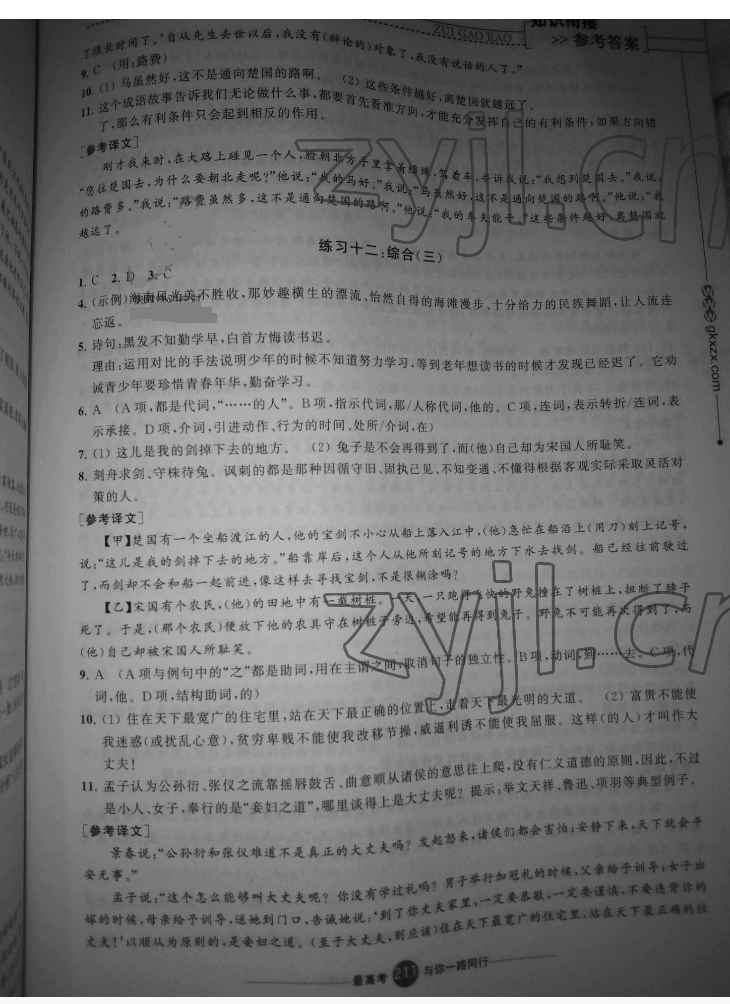 ZUI GAO KAO
知识衔接
>> 参考答案
了很长时间了。’自从先生去世以后，我没有(辩论的)对象了，我没有说话的人了。”
9. C （用：路费）
10. (1) 马虽然好，这不是通向楚国的路啊。 (2) 这些条件越好，离楚国就越远了。
11. 这个成语故事告诉我们无论做什么事，都要首先看准方向，才能充分发挥自己的有利条件；如果方向错
了，那么有利条件只会起到相反的作用。
[参考译文]
刚才我来时，在大路上碰见一个人，脸朝北方手里拿着缰绳，驾着车，告诉我说：“我想到楚国去。”我说：
“您往楚国去，为什么要朝北走呢？”他说：“我的马好。”我说：“马虽然好，这不是通向楚国的路啊。”他说：“我
的路费多。”我说：“路费虽然多，这不是通向楚国的路啊。”他说：“我的车夫能干。”这些条件越好，离楚国就
越远了。
练习十二：综合(三)
1. C 2. D 3. C
4. (示例)海南风光美不胜收，那妙趣横生的漂流、怡然自得的海滩漫步、十分给力的民族舞蹈，让人流连
忘返。
5. 诗句：黑发不知勤学早，白首方悔读书迟。
理由：运用对比的手法说明少年的时候不知道努力学习，等到老年想读书的时候才发现已经迟了。它劝
诫青少年要珍惜青春年华，勤奋学习。
6. A （A项，都是代词，“……的人”。B项，指示代词，那/人称代词，他的。C项，连词，表示转折/连词，表
示承接。D项，介词，引进动作、行为的时间、处所/介词，在）
7. (1) 这儿是我的剑掉下去的地方。 (2) 兔子是不会再得到了，而(他)自己却为宋国人所耻笑。
8. 刻舟求剑、守株待兔。讽刺的都是那种因循守旧、固执己见、不知变通、不懂得根据客观实际采取灵活对
策的人。
[参考译文]
【甲】楚国有一个坐船渡江的人，他的宝剑不小心从船上落入江中，(他)急忙在船沿上(用刀)刻上记号，
说：“这儿是我的剑掉下去的地方。”船靠岸后，这个人从他所刻记号的地方下水去找剑。船已经往前驶过
了，而剑却不会和船一起前进，像这样去寻找宝剑，不是很糊涂吗？
【乙】宋国有个农民，(他)的田地中有一截树桩。一天，一只跑得飞快的野兔撞在了树桩上，扭断了脖子
死了。于是，(那个农民)便放下他的农具守在树桩子旁边，希望能再得到兔子。野兔不可能再次得到了，而
(他)自己却被宋国人所耻笑。
9. A （A项与例句中的“之”都是助词，用在主谓之间，取消句子的独立性。B项，动词，到……去。C项，代
词，他。D项，结构助词，的）
10. (1) 住在天下最宽广的住宅里，站在天下最正确的位置上，走着天下最光明的大道。 (2) 富贵不能使
我迷惑(或扰乱心意)，贫穷卑贱不能使我改移节操，威逼利诱不能使我屈服。这样(的人)才叫作大
丈夫！
11. 孟子认为公孙衍、张仪之流靠摇唇鼓舌、曲意顺从诸侯的意思往上爬，没有仁义道德的原则，因此，不过
是小人、女子，奉行的是“妾妇之道”，哪里谈得上是大丈夫呢？提示：举文天祥、鲁迅、项羽等典型例子。
[参考译文]
景春说：“公孙衍和张仪难道不是真正的大丈夫吗？发起怒来，诸侯们都会害怕；安静下来，天下就会平
安无事。”
孟子说：“这个怎么能够叫大丈夫呢？你没有学过礼吗？男子举行加冠礼的时候，父亲给予训导；女子出
嫁的时候，母亲给予训导，送她到门口，告诫她说：‘到了你丈夫家里，一定要恭敬，一定要谨慎，不要违背你的
丈夫！’以顺从为原则的，是妾妇之道。(至于大丈夫，则应该)住在天下最宽广的住宅里，站在天下最正确的位
gkxzx.com
最高考 211 与你一路同行
zyjl.cn
zyjl.cn